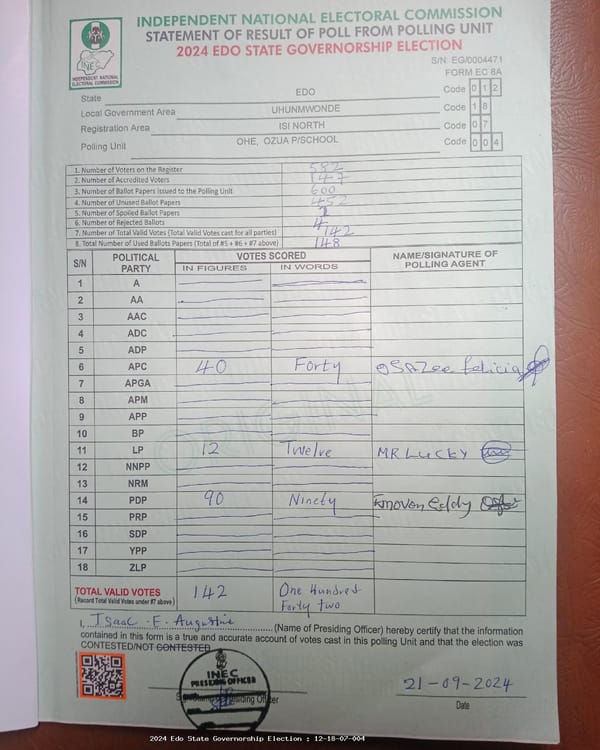 INDEPENDENT NATIONAL ELECTORAL COMMISSION
STATEMENT OF RESULT OF POLL FROM POLLING UNIT
2024 EDO STATE GOVERNORSHIP ELECTION
INEC
INDEPENDENT NATIONAL ELECTORAL COMMISSION
S/N EG/0004471
FORM EC 8A
State EDO Code 0 1 2
Local Government Area UHUNMWONDE Code 1 8
Registration Area ISI NORTH Code 0 7
Polling Unit OHE, OZUA P/SCHOOL Code 0 0 4
1. Number of Voters on the Register 582
2. Number of Accredited Voters 147
3. Number of Ballot Papers issued to the Polling Unit 600
4. Number of Unused Ballot Papers 452
5. Number of Spoiled Ballot Papers
6. Number of Rejected Ballots 4
7. Number of Total Valid Votes (Total Valid Votes cast for all parties) 142
8. Total Number of Used Ballots Papers (Total of #5 + #6 + #7 above) 148
S/N POLITICAL PARTY VOTES SCORED NAME/SIGNATURE OF POLLING AGENT
IN FIGURES IN WORDS
1 A
2 AA
3 AAC
4 ADC
5 ADP
6 APC 40 Forty Osazee felicia
7 APGA
8 APM
9 APP
10 BP
11 LP 12 Twelve MR LUCKY
12 NNPP
13 NRM
14 PDP 90 Ninety Eddy
15 PRP
16 SDP
17 YPP
18 ZLP
ORIGINAL
TOTAL VALID VOTES 142 One Hundred
(Record Total Valid Votes under #7 above) Forty two
I, Isaac .E. Augustine (Name of Presiding Officer) hereby certify that the information
contained in this form is a true and accurate account of votes cast in this polling Unit and that the election was
CONTESTED/NOT CONTESTED
INEC
PRESIDING OFFICER
Signature of Presiding Officer
21-09-2024
Date
2024 Edo State Governorship Election : 12-18-07-004